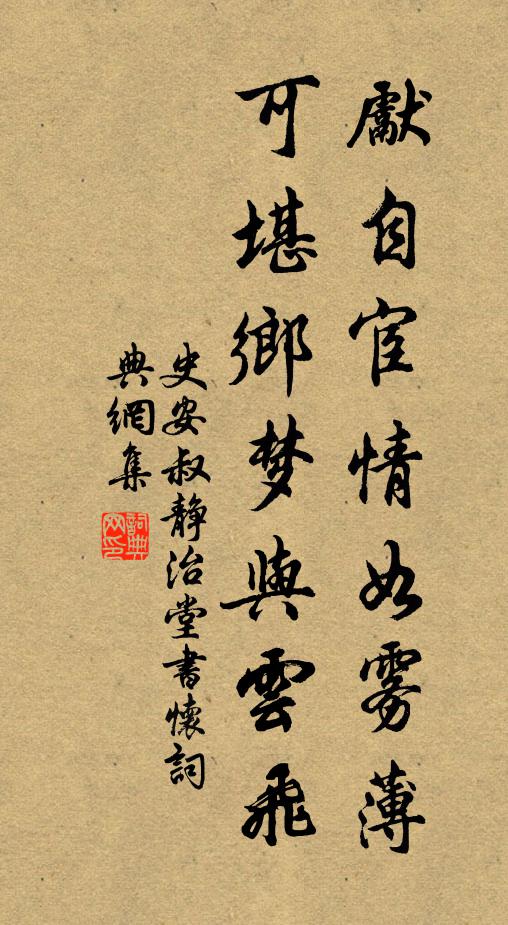 獻自宦情如雾薄
可堪鄉梦與雲飛
史安叔静治堂書懷詞
典網集
詞典
网印